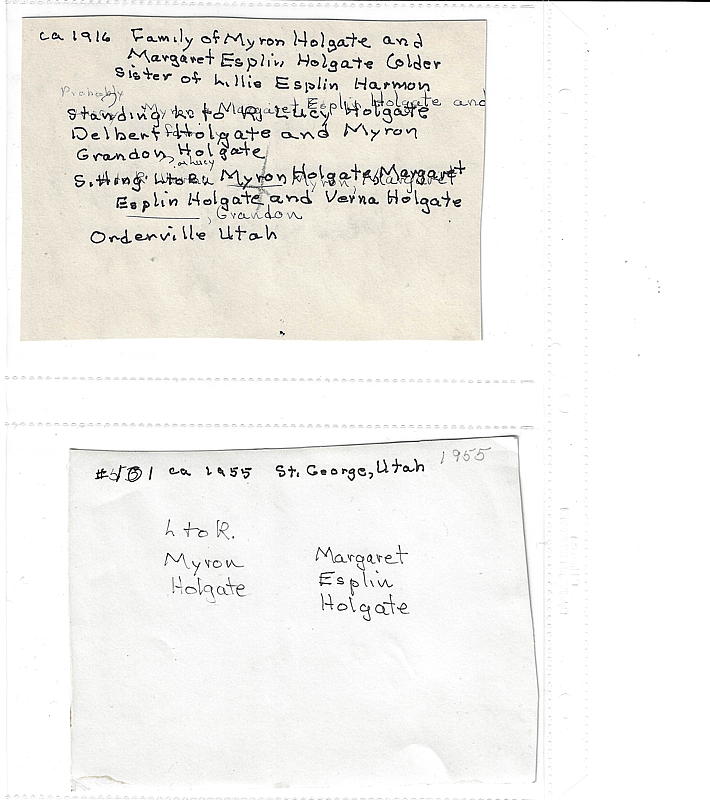 ca 1916 Family of Myron Holgate and
Margaret Esplin Holgate Colder
Sister of Lillie Esplin Harmon
Probably
Myron Margaret Esplin Holgate and
Standing L to R, Lucy Holgate
Delbert Holgate and Myron
Grandon Holgate
or Lucy
Sitting L to R. Myron Holgate, Margaret
Myron, Margaret
Esplin Holgate and Verna Holgate
, Grandon
Orderville Utah
ca 1955 St. George, Utah 1955
L to R.
Myron Margaret
Holgate Esplin
Holgate